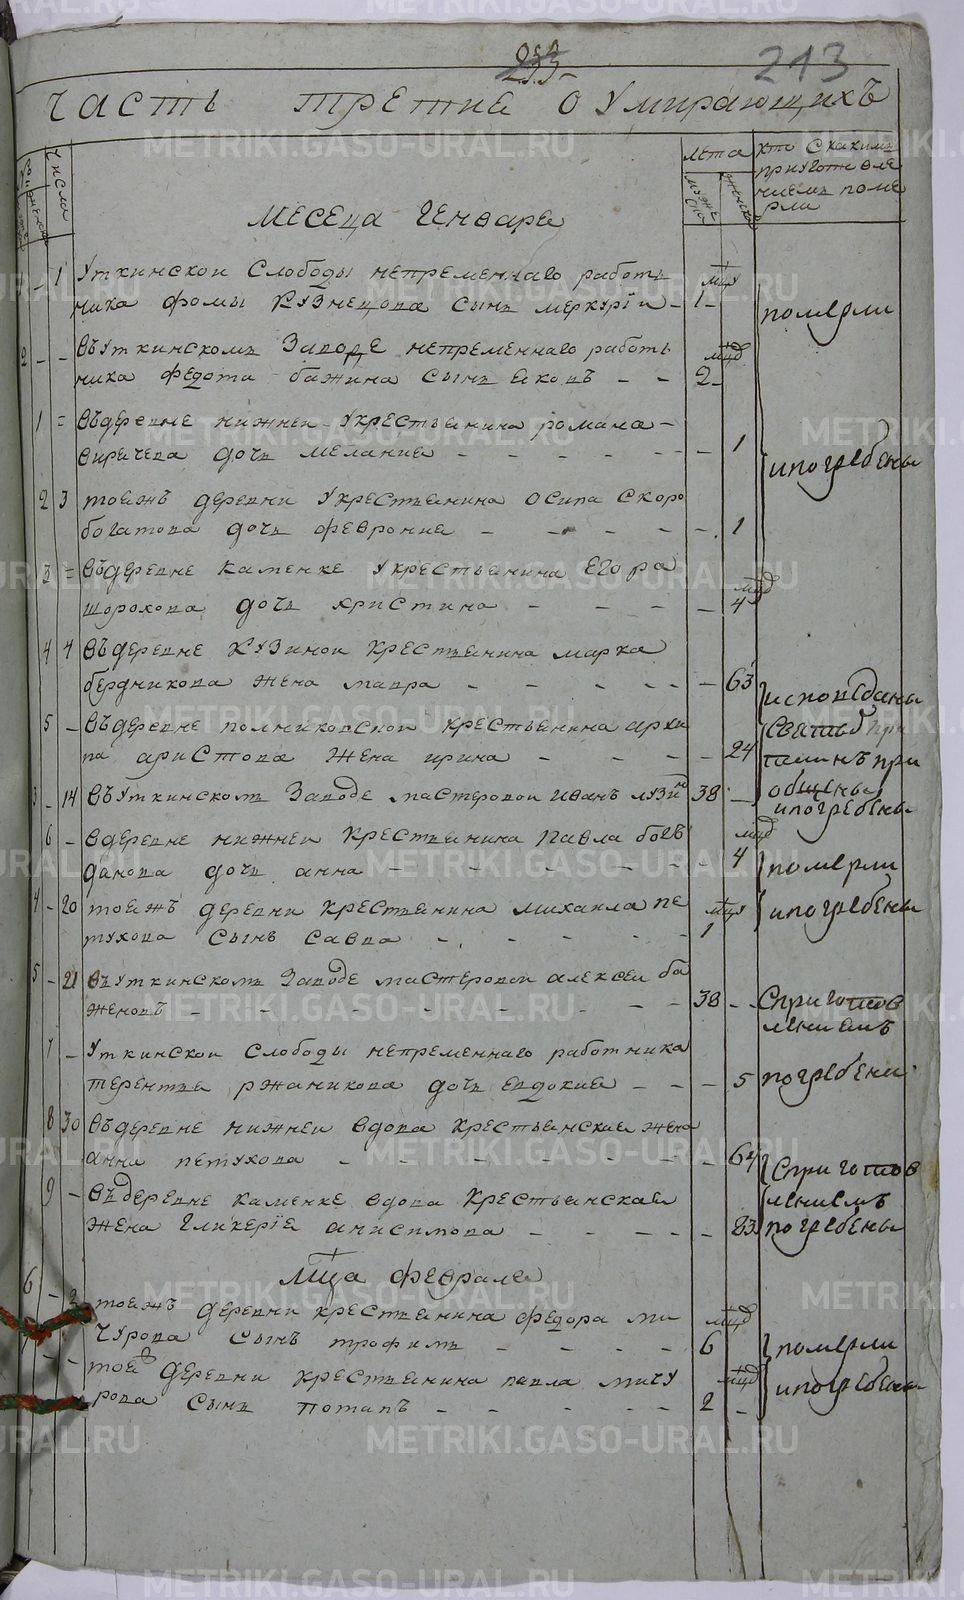 213
часть третие о умирающихъ
числа
лета
кто скакимъ
приуготовле
ниемъ поме
рли
месеца генваре
1 уткинской слободы непременнаго работь
мцу
ника фомы кузнецова сынъ меркурїи - 1 -
померли
2 - - въуткинскомъ заводе непременнаго работь
мцд
ника федота бажина сынъ ековъ - - 2 -
1 = въдеревне нижней укрестьенина романа -
вирачева дочь мелание - - - - - 1
ипогребены
2 3 тоежъ деревни укрестьенина осипа скоро
богатова дочь февроние - - - - - 1
3 = въдеревне каменке укрестьенина егора
мцд
шорохова дочь христина - - - - 4
4 4 въдеревне кузиной крестьенина марка
бердникова жена мавра - - - - - 63
исповеданы
5 - въдеревне полниковской крестьенина архи
светыхъ при
па аристова жена ирина - - - - 24
таинъ при
3 - 14 въуткинскомъ заводе мастеровой иванъ лузинъ 38 -
общены
ипогребены
6 - вдеревне нижней крестьенина павла богъ
мцд
данова дочь анна - - - - - 4
померли
4 - 20 тоежъ деревни крестьенина михаила пе
мцу
ипогребены
тухова сынъ савва - - - - - 1
5 - 21 въуткинскомъ заводе мастеровой алексей ба
женовъ - - - - - - 38 - -
сприготов
лениемъ
7 - уткинской слободы непременнаго работника
терентье ржаникова дочь евдокие - - - 5
погребены
8 30 въдеревне нижней вдова крестьенские жена
анна петухова - - - - - - 64
сприготов
9 - въдеревне каменке вдова крестьенскае
лениемъ
жена гликерїе анисимова - - - - 83
погребены
мца феврале
6 - 2 тоежъ деревни крестьенина федора ми
мцд
чурова сынъ трофимъ - - - - 6
померли
- - тоей деревни крестьенина павла мичу
мцд
ипогребены
рова сынъ потапъ - - - - - 2 -
METRIKI.GASO-URAL.RU